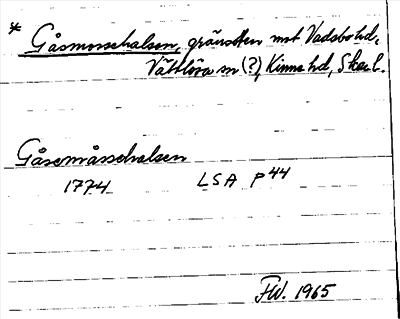 * Gåsmosshalsen, gränssten mot Vadsbo hd,
Vättlösa sn (?), Kinne hd, Skarb.
Gåsemåsshalsen
1774 LSA P 44
FW. 1965